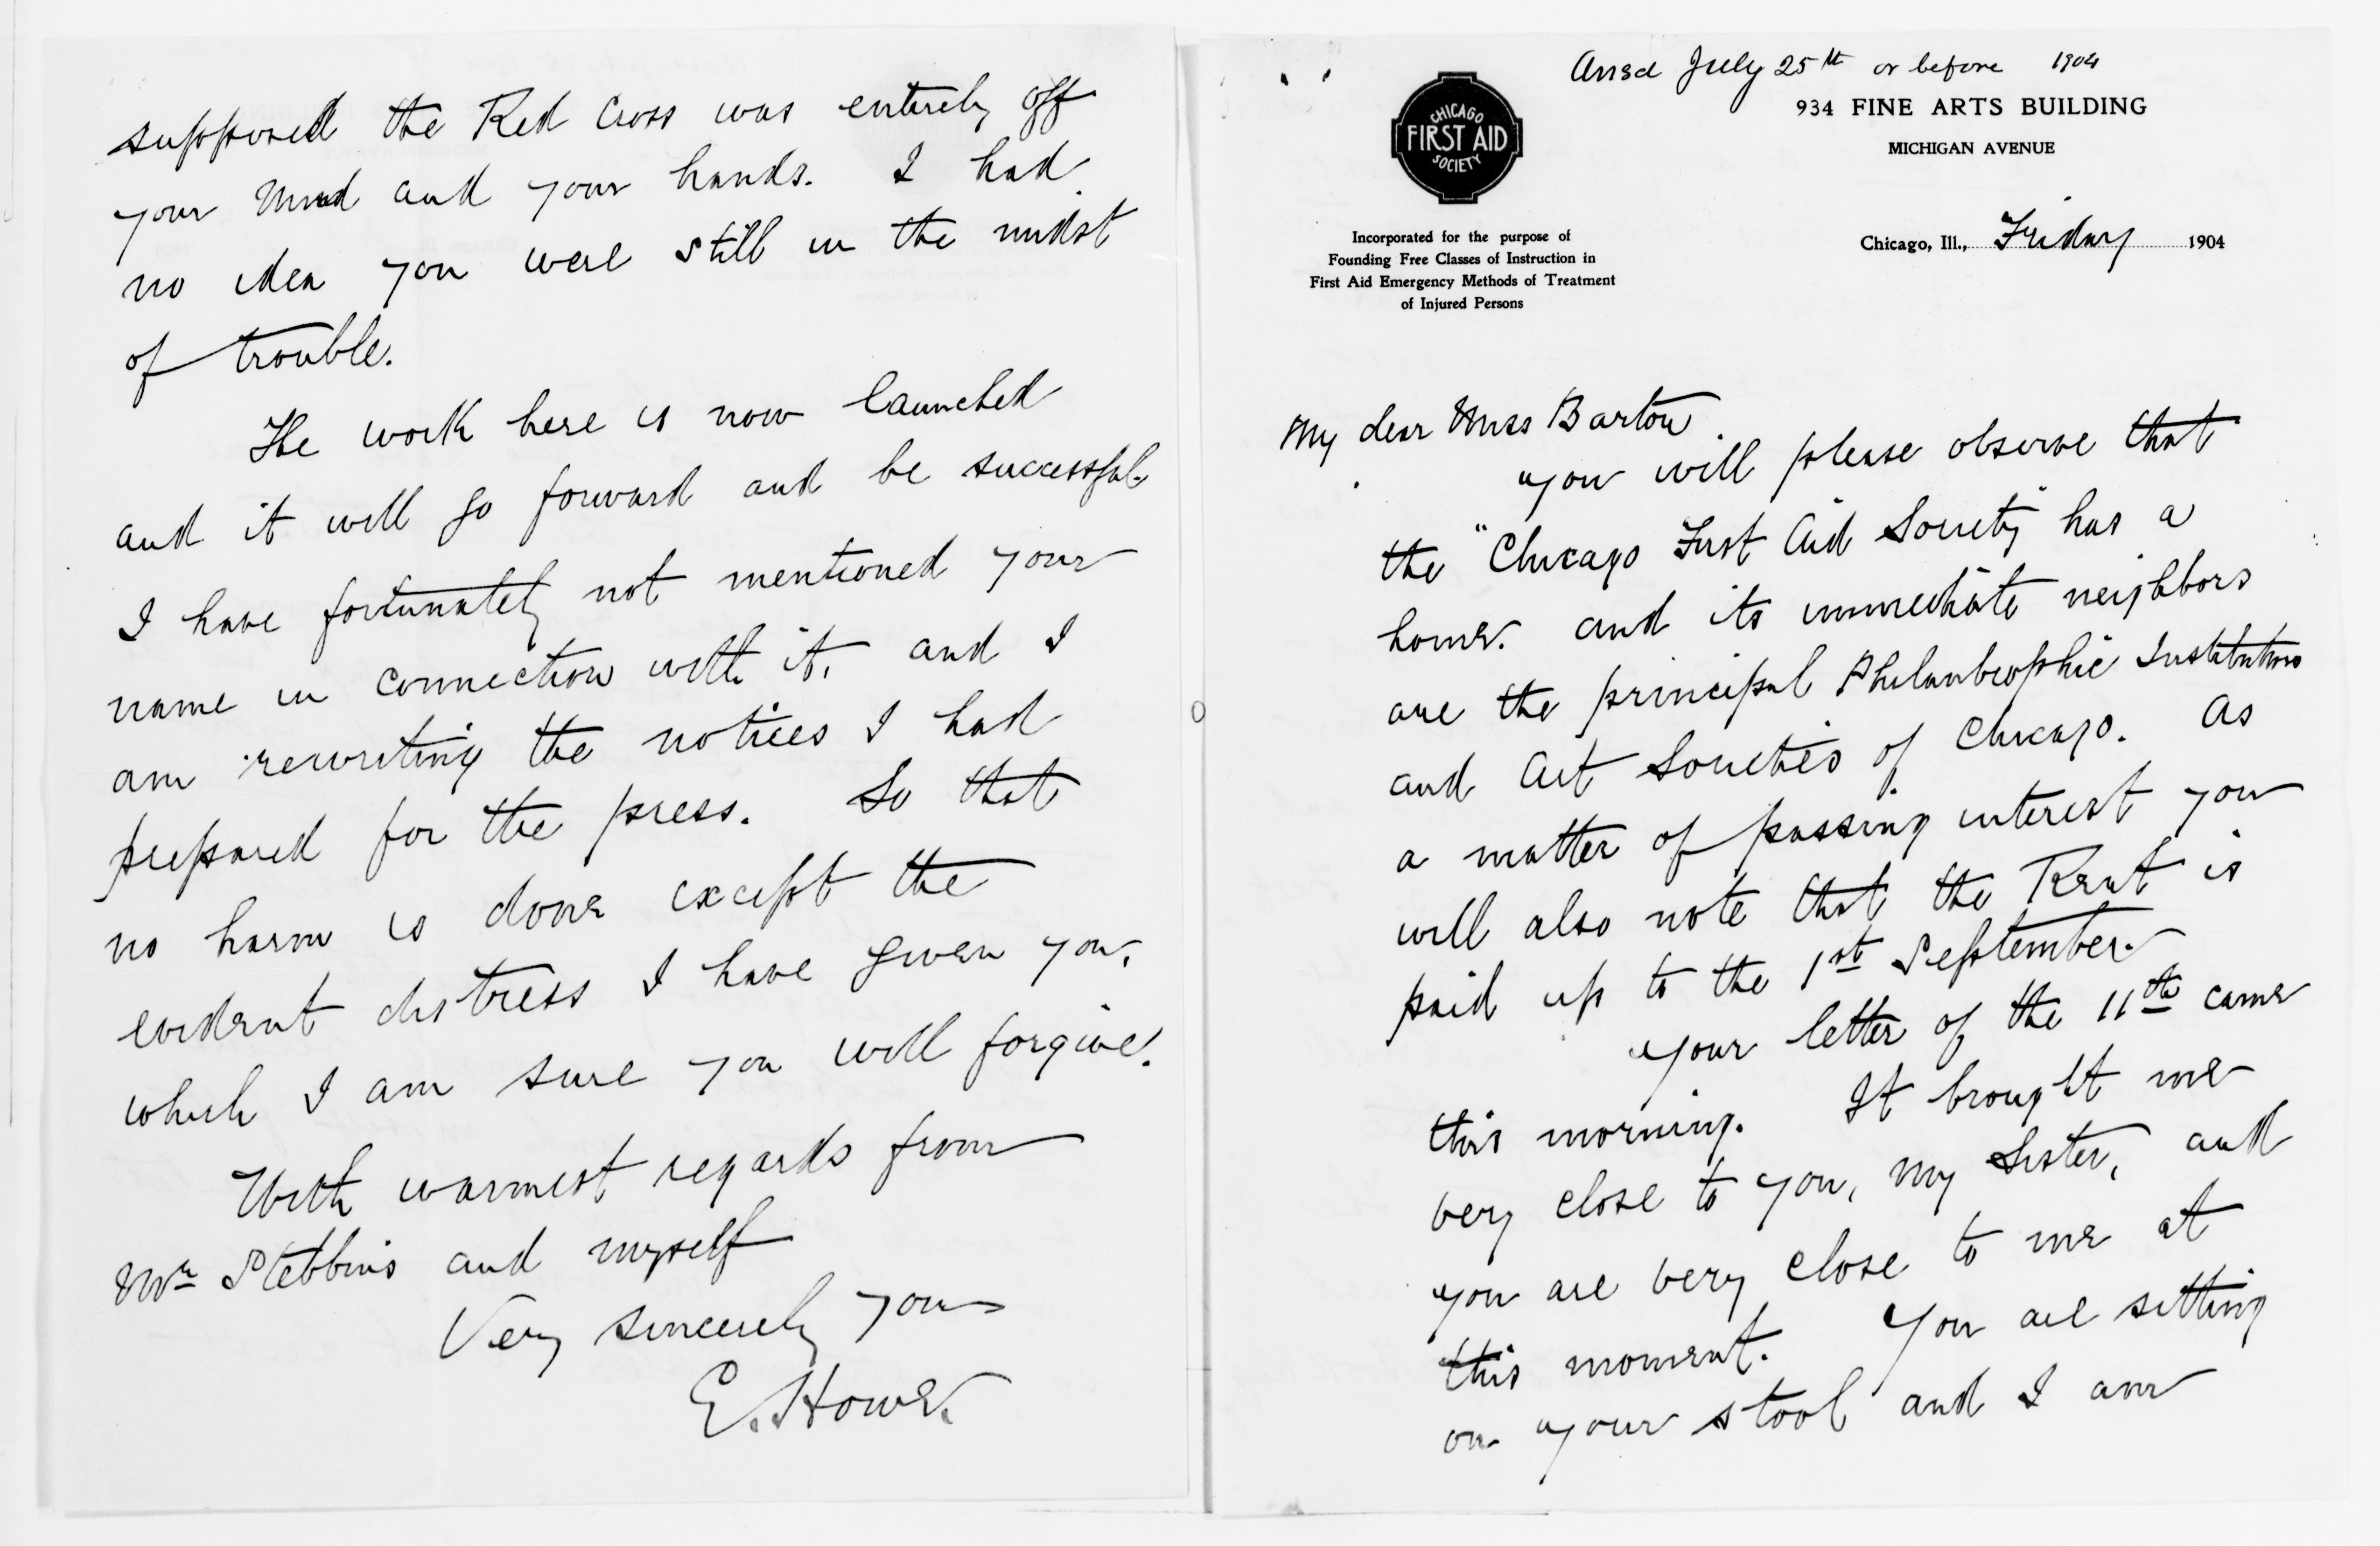 supposed the Red Cross was entirely off
your mind and your hands. I had
no idea you were still in the midst
of trouble.
The work here is now launched
and it will go forward and be successful.
I have fortunately not mentioned your
name in connection with it, and I
am rewriting the notices I had
prepared for the press. So that
no harm is done except the
evident distress I have given you,
which I am sure you will forgive.
With warmest regards from
Mr Stebbins and myself
Very sincerely yours
E. Howe.
Ansd July 25th or before 1904
CHICAGO
FIRST AID
SOCIETY
934 FINE ARTS BUILDING
MICHIGAN AVENUE
Incorporated for the purpose of
Founding Free Classes of Instruction in
First Aid Emergency Methods of Treatment
of Injured Persons
Chicago, Ill., Friday 1904
My dear Miss Barton.
you will please observe that
the "Chicago First Aid Society" has a
home. and its immediate neighbors
are the principal Philanthrophic Institutions
and Art Societies of Chicago. As
a matter of passing interest you
will also note that the Rent is
paid up to the 1st September.
your letter of the 11th came
this morning. It brought me
very close to you, my Sister, and
you are very close to me at
this moment. You are sitting
on your stool and I am